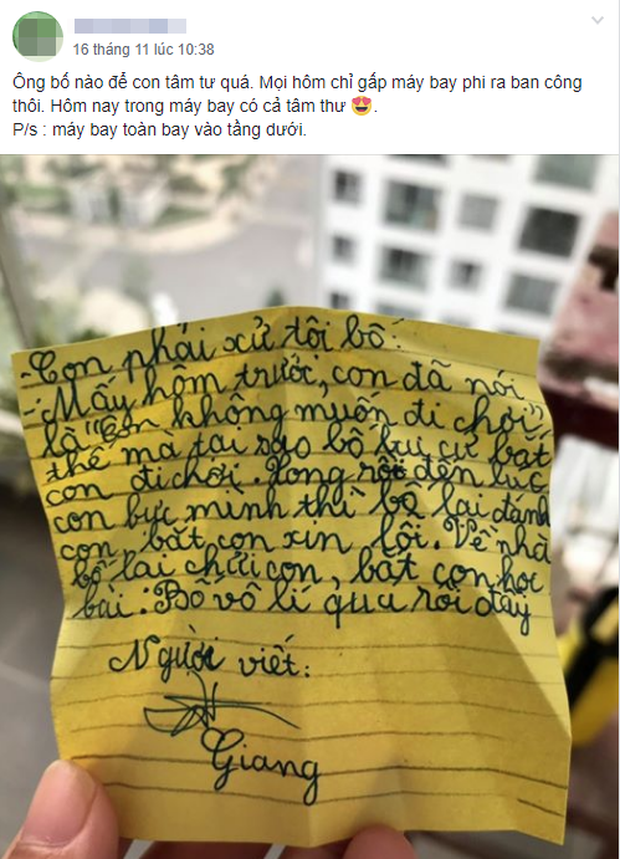 16 tháng 11 lúc 10:38
Ông bố nào để con tâm tư quá. Mọi hôm chỉ gấp máy bay phi ra ban công
thôi. Hôm nay trong máy bay có cả tâm thư 😍.
P/s : máy bay toàn bay vào tầng dưới.
-Con phải xử tội bố:
-Mấy hôm trước, con đã nói
là "Con không muốn đi chơi",
thế mà tại sao bố lại cứ bắt
con đi chơi. Xong rồi đến lúc
con bực mình thì bố lại đánh
con, bắt con xin lỗi. Về nhà
bố lại chửi con, bắt con học
bài. Bố vô lí quá rồi đấy
Người viết:
Giang